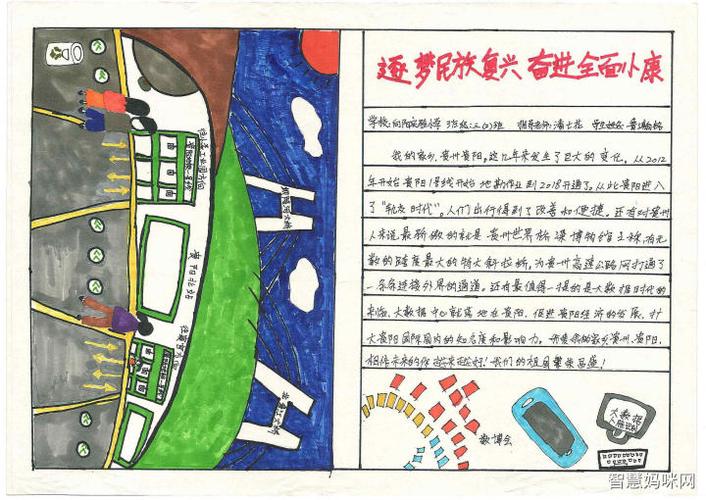 逐梦民族复兴 奋进全面小康
学校:向阳实验小学 班级:三(2)班 指导老师:潘士花 学生姓名:
我的家乡,贵州贵阳。这几年来发生了巨大的变化。从2012
年开始贵阳1号线开始地勘作业到2018开通了。从此贵阳进入
了“轨友时代”。人们出行得到了改善和便捷。还有对贵州
人来说最骄傲的就是贵州世界桥梁博物馆之称,有无
数的跨度最大的特大斜拉桥,为贵州高速公路网打通了
一条条连接外界的通道。还有最值得一提的是大数据时代的
来临,大数据中心就落地在贵阳,促进贵阳经济的发展,扩
大贵阳国际国内的知名度和影响力。我的家乡贵州、贵阳,
相信未来的你会越来越好!我们的祖国繁荣昌盛!
数博会
大数据
贵阳北站
智慧妈咪网